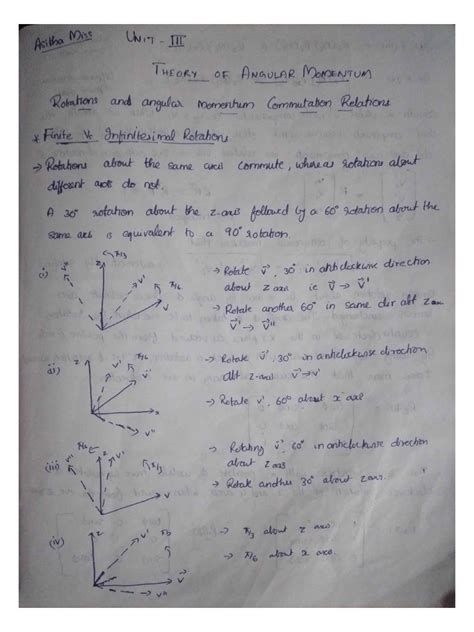 Unit - III
Theory of Angular Momentum
Rotations and angular momentum Commutation Relations
* Finite Vs Infinitesimal Rotations
→ Rotations about the same axis commute, whereas rotations about
different axis do not.
A 30° rotation about the z-axis followed by a 60° rotation about the
same axis is equivalent to a 90° rotation.
i) z π/3 v' π/6 v
→ Rotate v, 30° in anticlockwise direction
about z axis ie v → v'
→ Rotate another 60° in same dir abt z axis
v' → v''
ii) z π/6 v' v x v''
→ Rotate v, 30° in anticlockwise direction
abt z-axis v → v'
→ Rotate v', 60° about x axis
(iii) π/6 z v' π/3 v
→ Rotating v, 60° in anticlockwise direction
about z axis
→ Rotate another 30° about z axis.
(iv) z v' v v''
→ π/3 about z axis
→ π/6 about x axis.